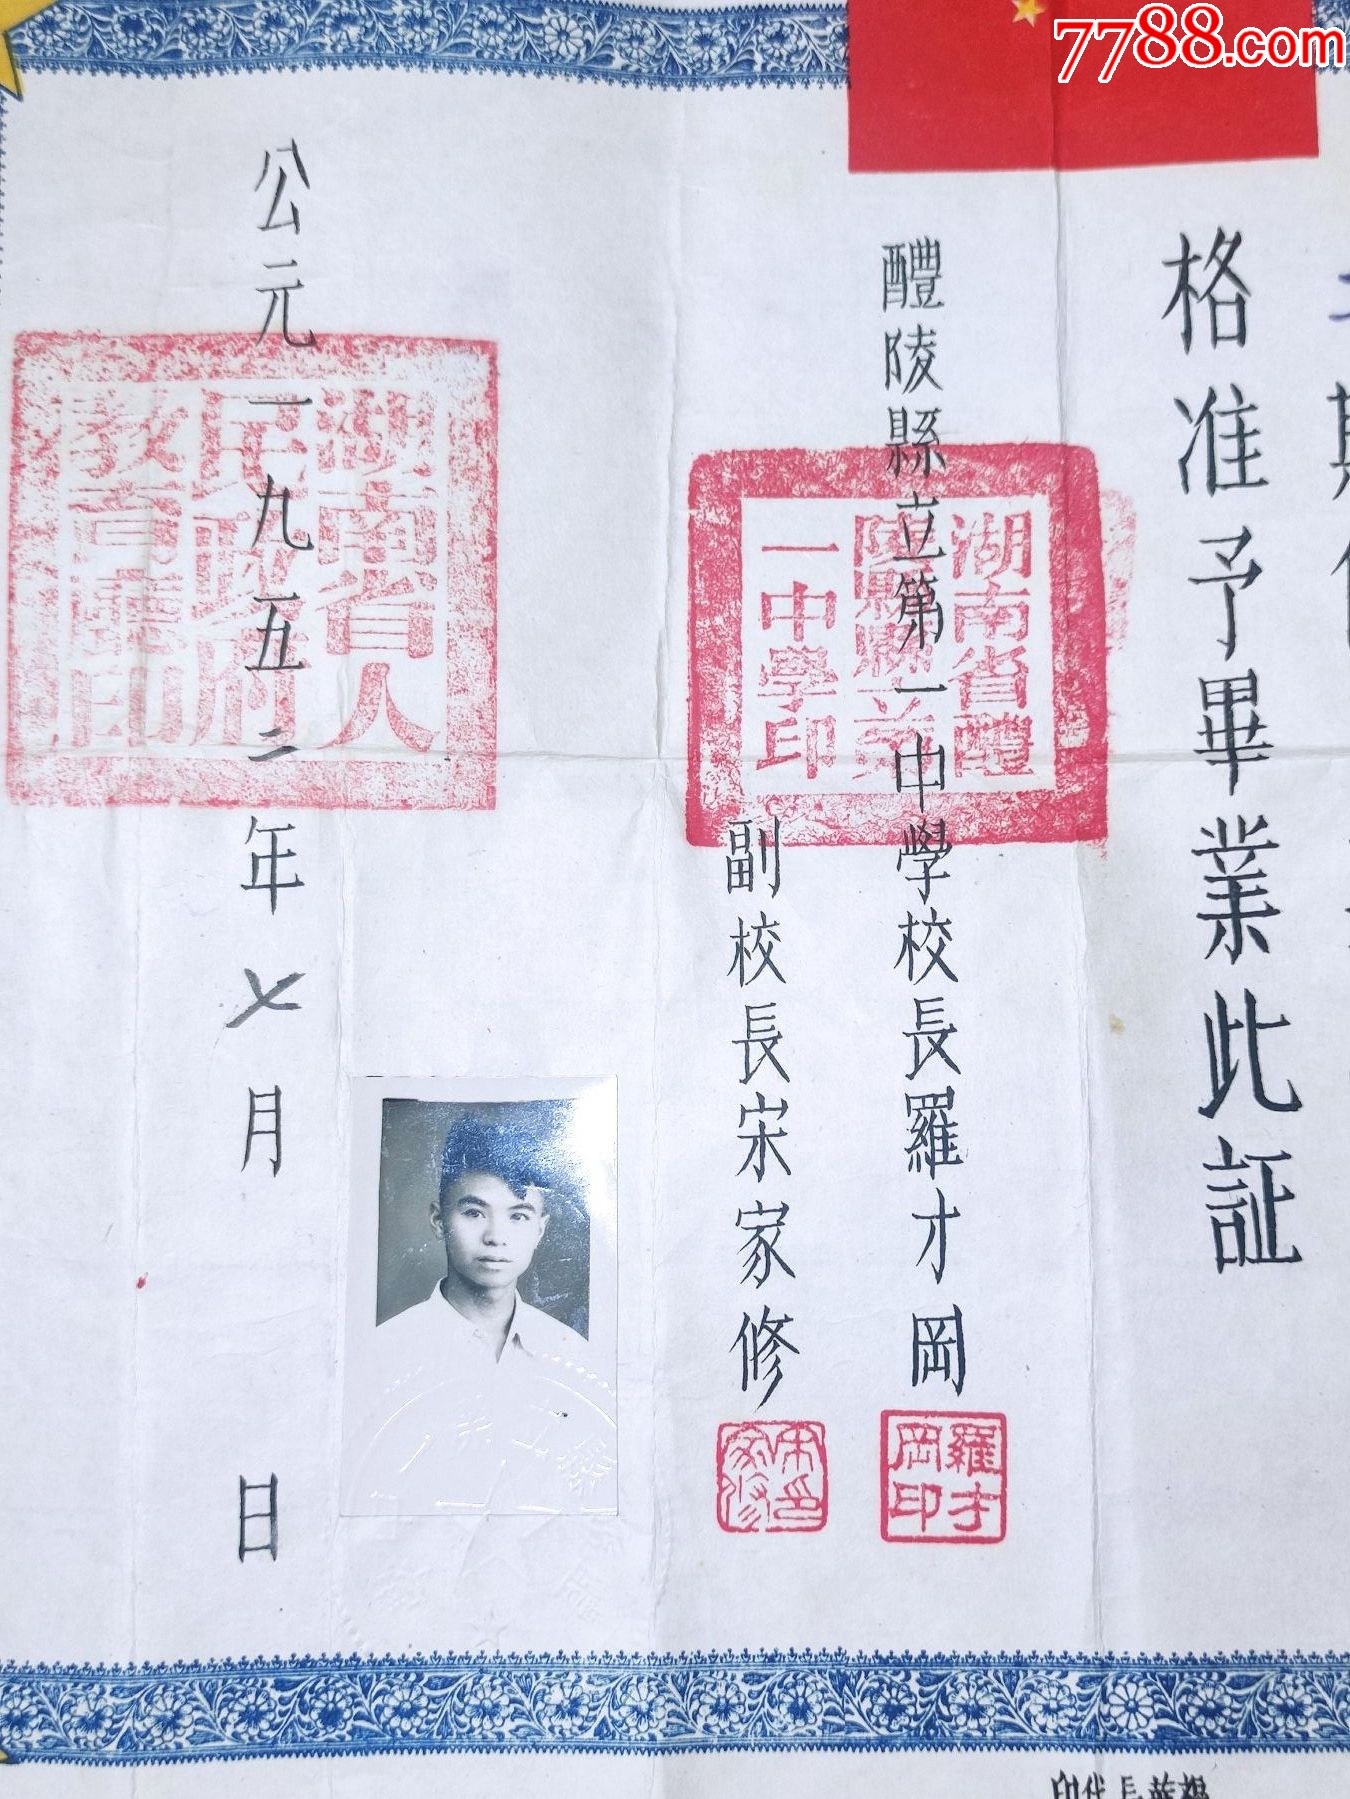 7788.com
格准予畢業此証
醴陵縣立第一中學校長羅才岡
副校長宋家修
公元一九五二年七月
日
湖南省醴
陵縣縣立第
一中學印
湖南省人
民政府
教育廳印
羅才
岡印
宋印
家修